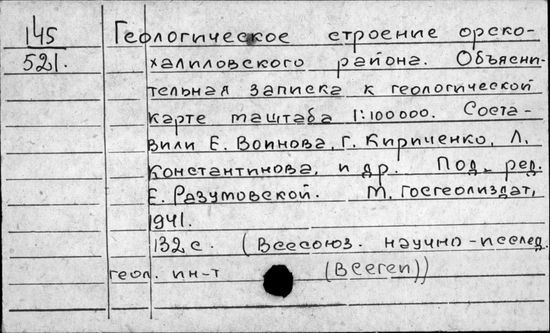 145 Геологическое строение орско-
521. халиловского района. Объясни-
тельная записка к геологической
карте масштаба 1:100000. Соста-
вили Е. Воинова, Г. Кириченко, Л.
Константинова, и др. Под ред.
Е. Разумовской. М. Госгеолиздат,
1941.
132 с. (Всесоюз. научно-исслед.
геол. ин-т (Всегеи))